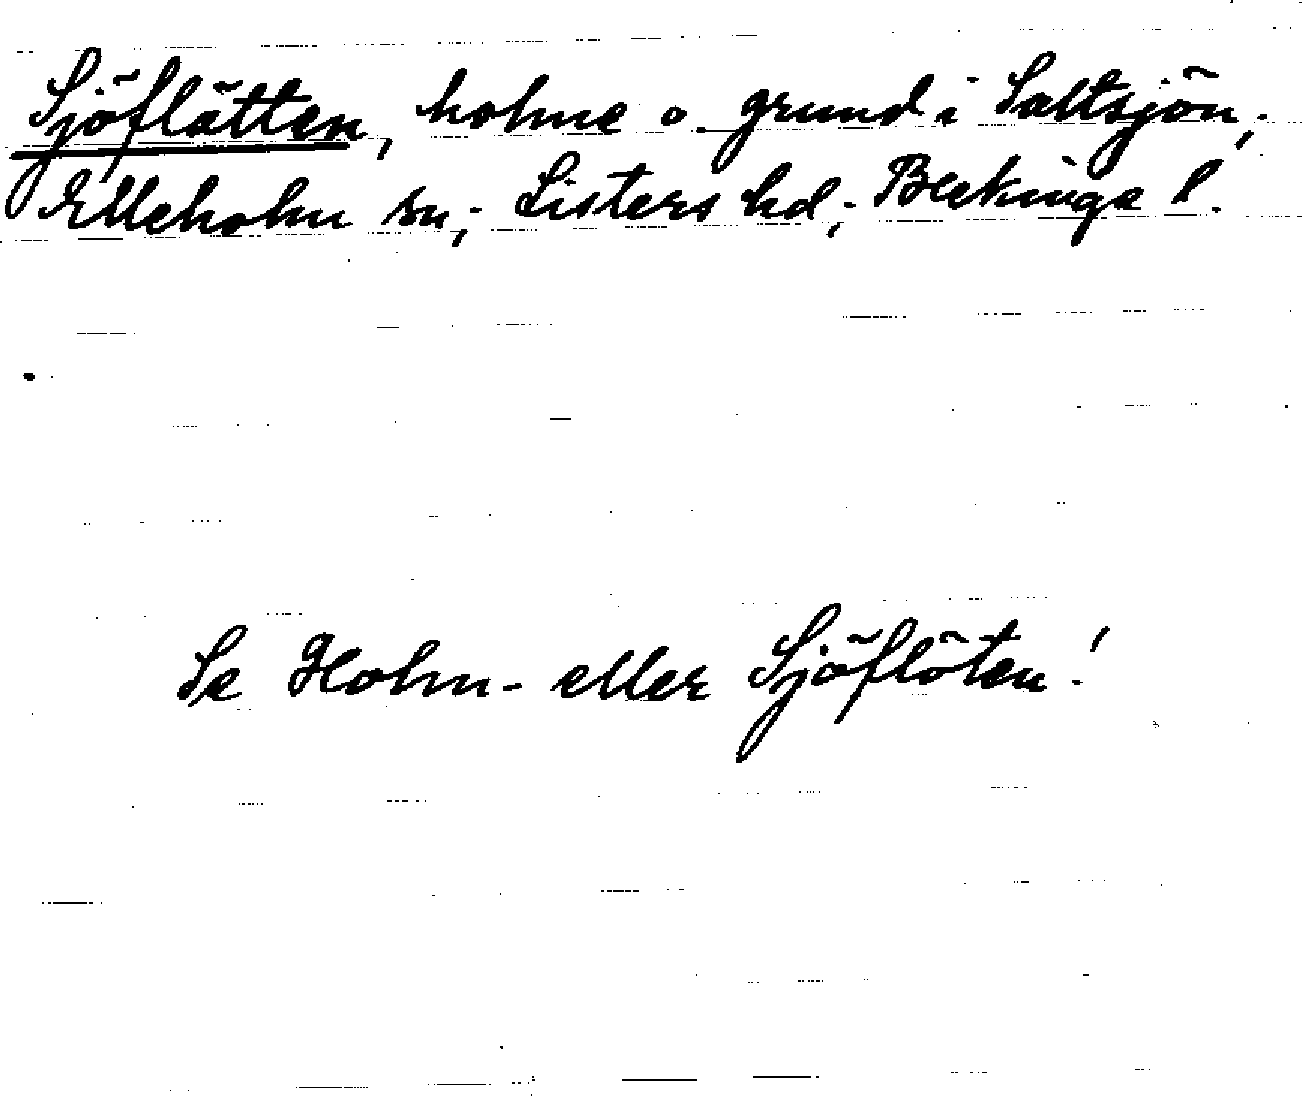 Sjöflätten, holme o. grund i Saltsjön,
Elleholm sn, Listers hd, Blekinge l.
Se Holm- eller Sjöflöten!